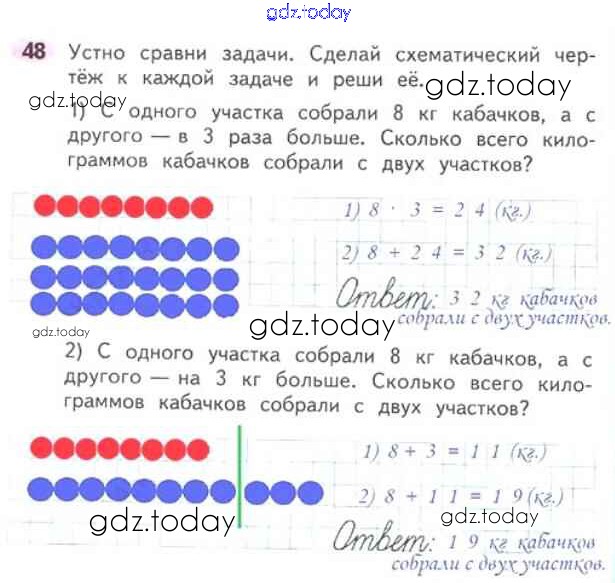 gdz.today
48 Устно сравни задачи. Сделай схематический чер-
тёж к каждой задаче и реши её.
gdz.today
gdz.today
1) С одного участка собрали 8 кг кабачков, а с
другого — в 3 раза больше. Сколько всего кило-
граммов кабачков собрали с двух участков?
1) 8 · 3 = 2 4 (кг.)
2) 8 + 2 4 = 3 2 (кг.)
Ответ: 3 2 кг кабачков
собрали с двух участков.
gdz.today
gdz.today
2) С одного участка собрали 8 кг кабачков, а с
другого — на 3 кг больше. Сколько всего кило-
граммов кабачков собрали с двух участков?
1) 8 + 3 = 1 1 (кг.)
2) 8 + 1 1 = 1 9 (кг.)
gdz.today
gdz.today
Ответ: 1 9 кг кабачков
собрали с двух участков.